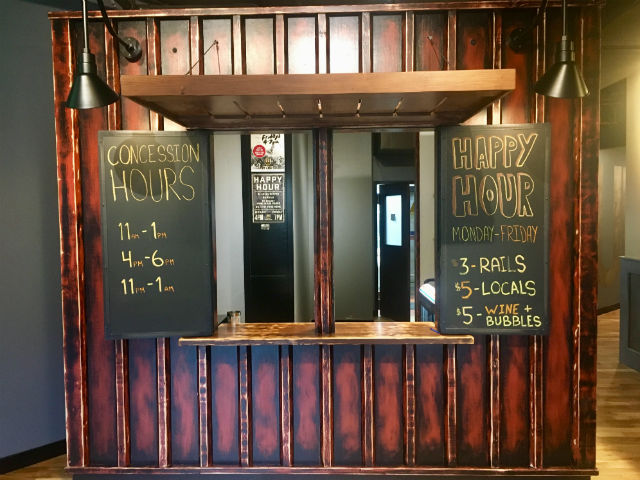 CONCESSION
HOURS
11AM-1PM
4PM-6PM
11PM-1AM
HAPPY
HOUR
HAPPY
HOUR
MONDAY-FRIDAY
$3-RAILS
$5-LOCALS
$5-WINE +
BUBBLES